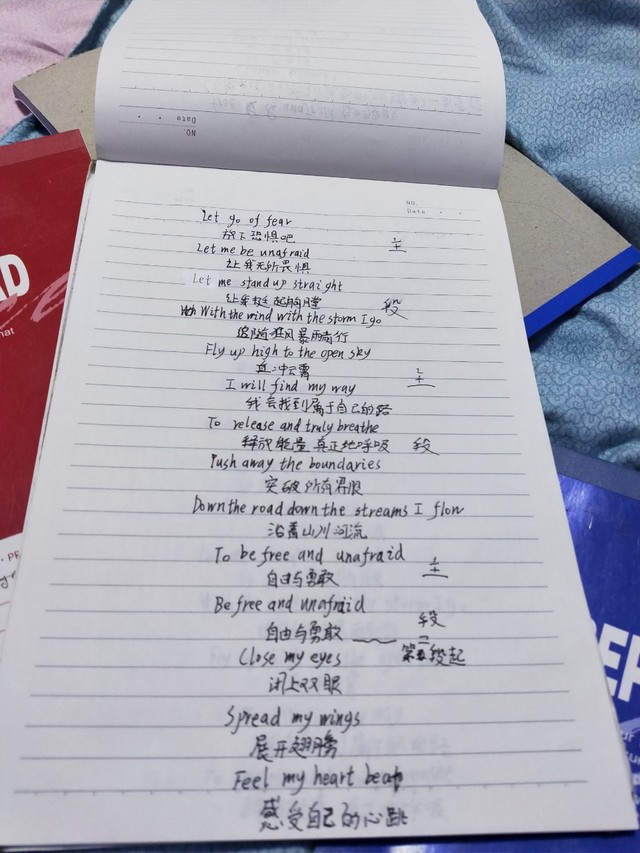 NO.
Date
NO.
Date
Let go of fear
放下恐惧吧
主
Let me be unafraid
让我无所畏惧
Let me stand up straight
让我挺起胸膛
段
With the wind with the storm I go
追随狂风暴雨前行
Fly up high to the open sky
直冲云霄
主
I will find my way
我会找到属于自己的路
To release and truly breathe
释放能量真正地呼吸 段
Push away the boundaries
突破所有界限
Down the road down the streams I flow
沿着山川河流
To be free and unafraid
主
自由与勇敢
Be free and unafraid
段
自由与勇敢
Close my eyes
第二段起
闭上双眼
Spread my wings
展开翅膀
Feel my heart beat
感受自己的心跳